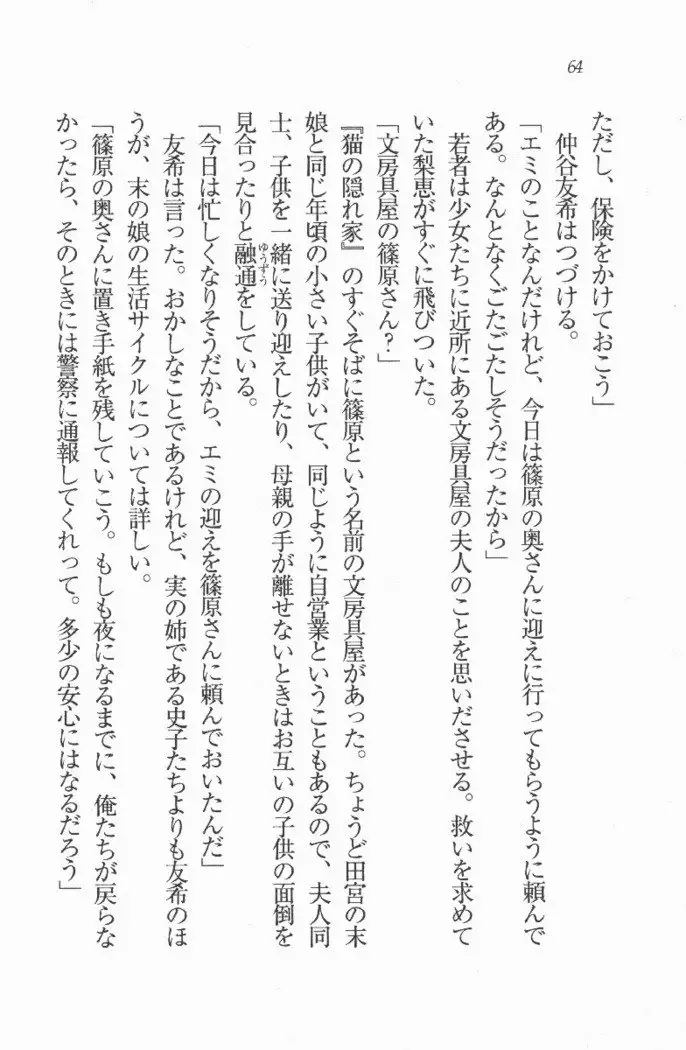 64
ただし、保険をかけておこう」
仲谷友希はつづける。
「エミのことなんだけれど、今日は篠原の奥さんに迎えに行ってもらうように頼んで
ある。なんとなくごたごたしそうだったから」
若者は少女たちに近所にある文房具屋の夫人のことを思いださせる。救いを求めて
いた梨恵がすぐに飛びついた。
「文房具屋の篠原さん？」
『猫の隠れ家』のすぐそばに篠原という名前の文房具屋があった。ちょうど田宮の末
娘と同じ年頃の小さい子供がいて、同じように自営業ということもあるので、夫人同
士、子供を一緒に送り迎えしたり、母親の手が離せないときはお互いの子供の面倒を
見合ったりと融通をしている。
ゆうずう
「今日は忙しくなりそうだから、エミの迎えを篠原さんに頼んでおいたんだ」
友希は言った。おかしなことであるけれど、実の姉である史子たちよりも友希のほ
うが、末の娘の生活サイクルについては詳しい。
「篠原の奥さんに置き手紙を残していこう。もしも夜になるまでに、俺たちが戻らな
かったら、そのときには警察に通報してくれって。多少の安心にはなるだろう」